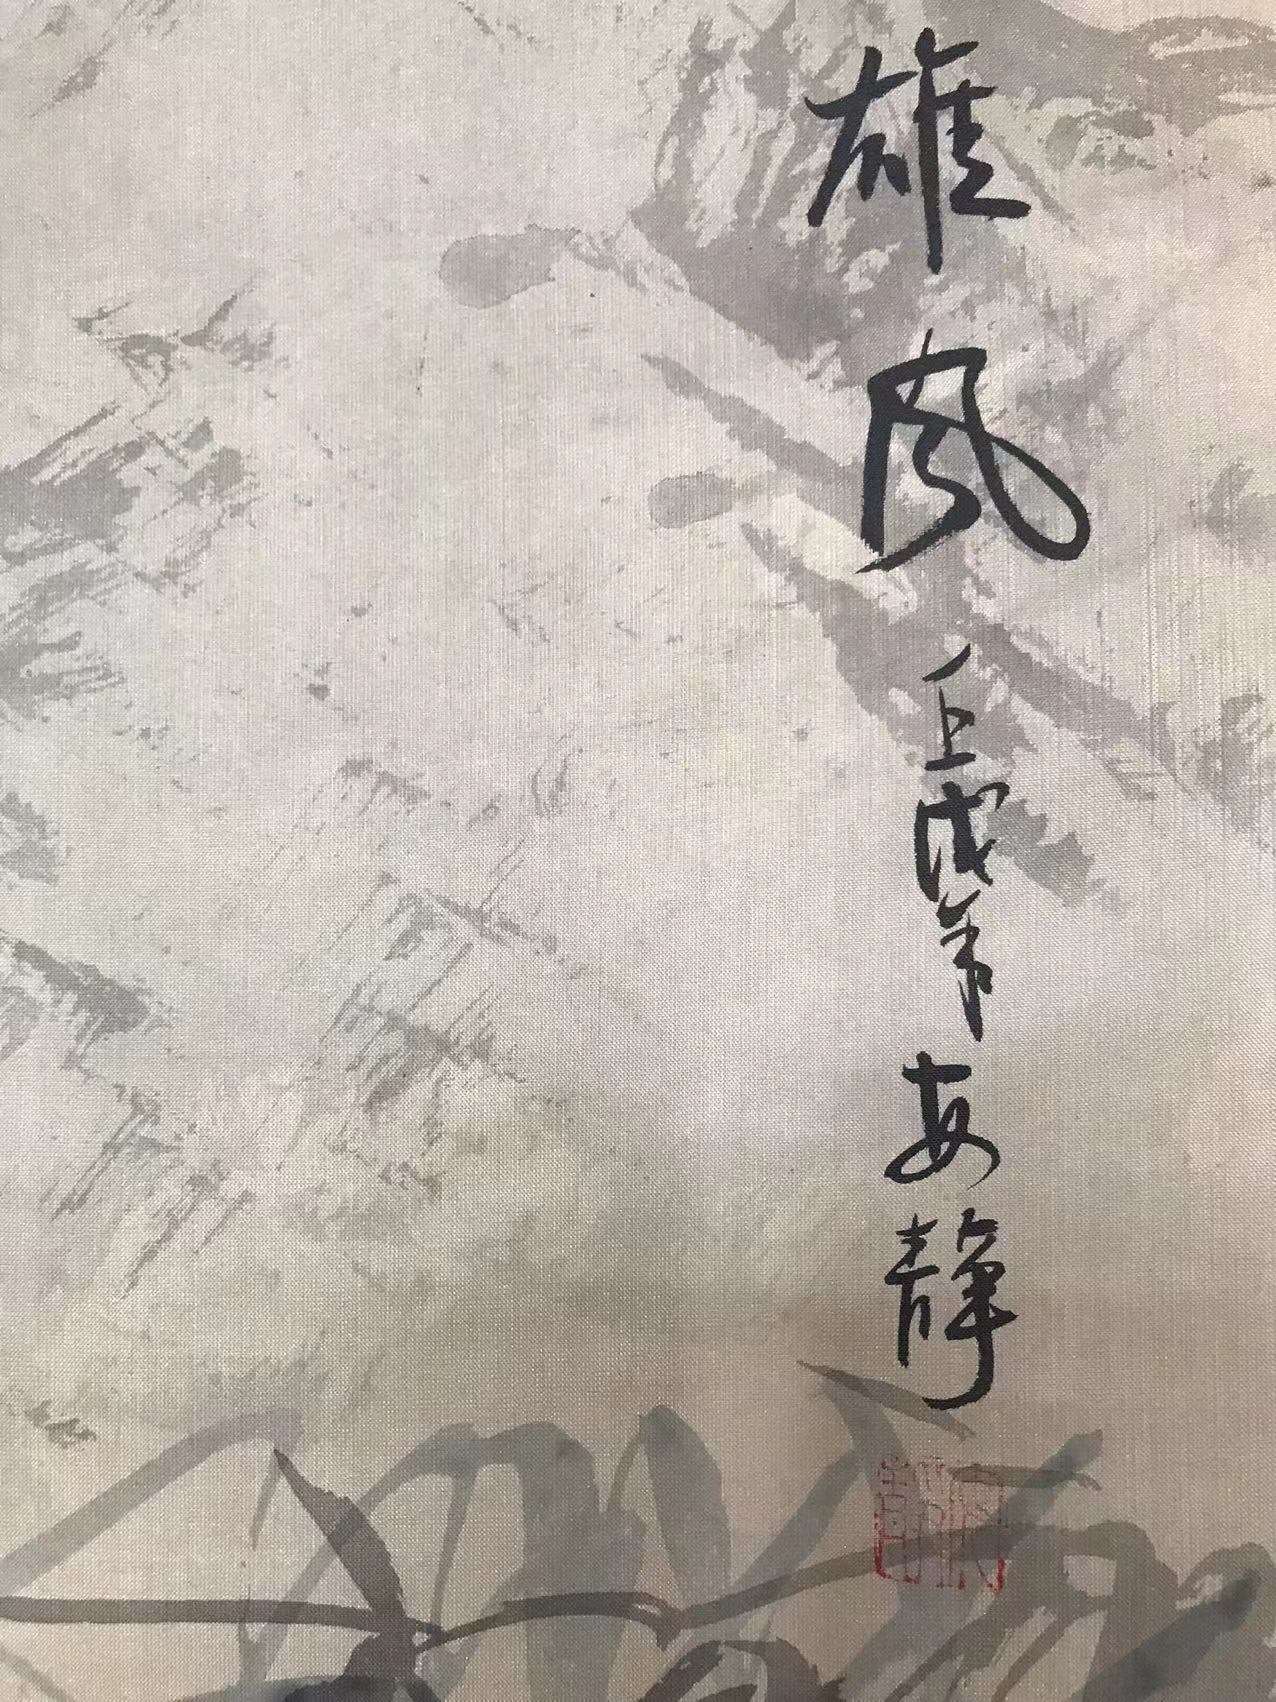 雄风壬戌年安静